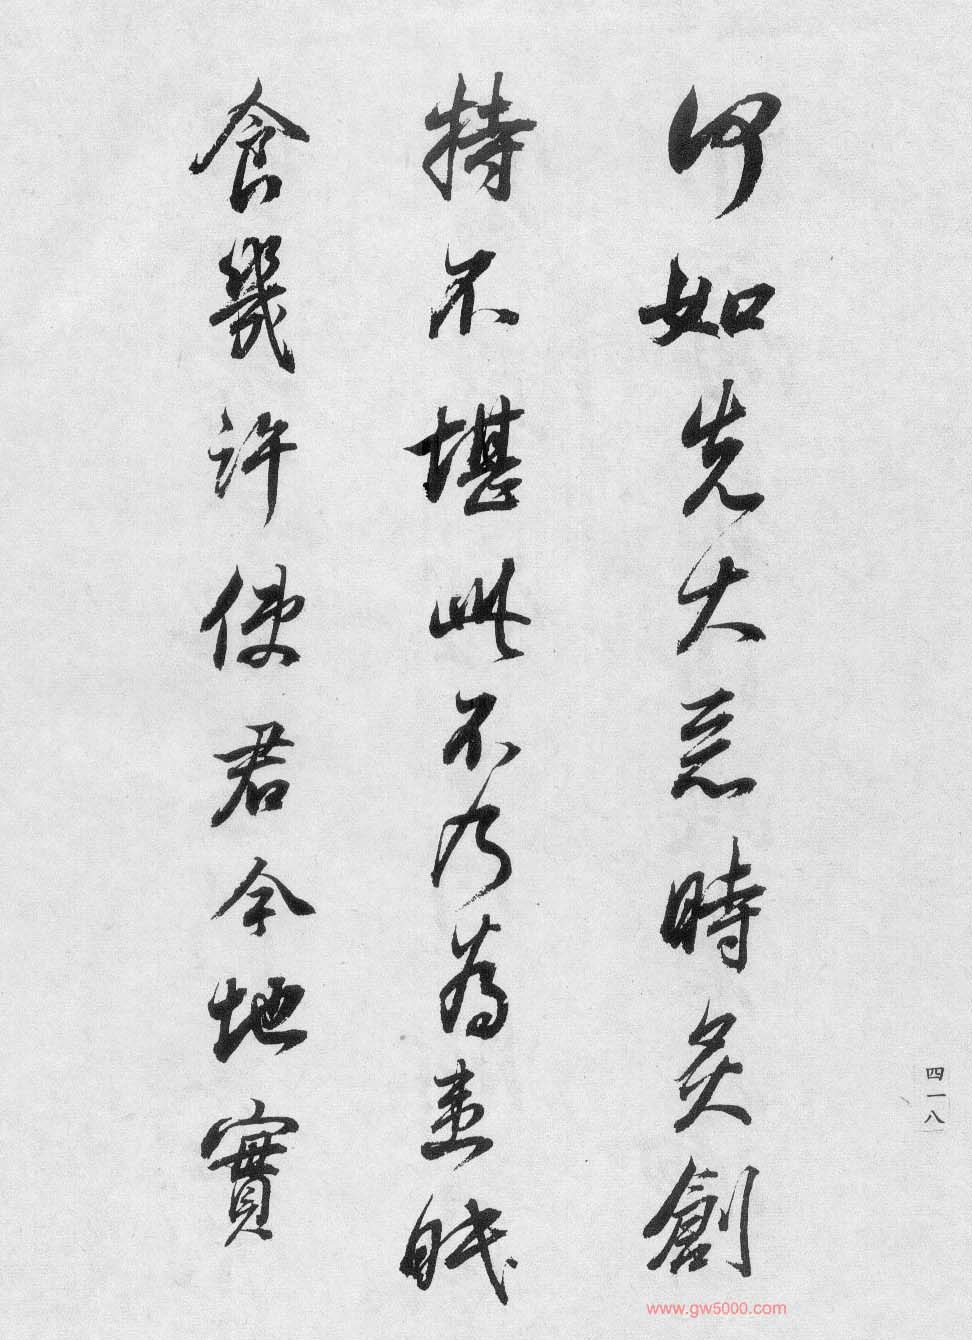 何如先大惡時灸創
特不堪此不乃為患眠
食幾許使君今地實
四一八
www.gw5000.com